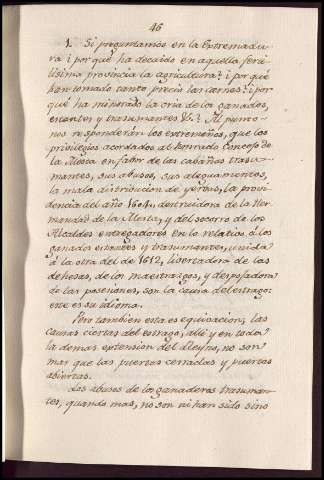 46
1. Si preguntamos en la Extremadu-
ra ¿por qué ha decaido en aquella feri-
lisima provincia la agricultura? ¿por qué
han tomado tanto precio las carnes? ¿por
qué ha minorado la cria de los ganados,
estantes y trasumantes &c.? Al punto
nos responderán los extremeños, que los
privilegios acordados al honrado Concejo de
la Mesta en fabor de las cabañas trasu-
mantes, sus abusos, sus alegamientos,
la mala distribucion de yerbas, la provi-
dencia del año 1604, destruidora de la Her-
mandad de la Mesta, y del socorro de los
Alcaldes entregadores en lo relatibo á los
ganados estantes y trasumantes, unida
á la otra del de 1612, libertadora de las
dehesas, de los maestrazgos, y despojadora
de las posesiones, son la causa del estrago:
este es su idioma.
Pero tambien esta es equibocacion; las
causas ciertas del estrago, alli y en toda
la demas extension del Reyno, no son
mas que las puertas cerradas y puertas
abiertas.
Los abusos de los ganaderos trasuman-
tes, quando mas, no son ni han sido sino